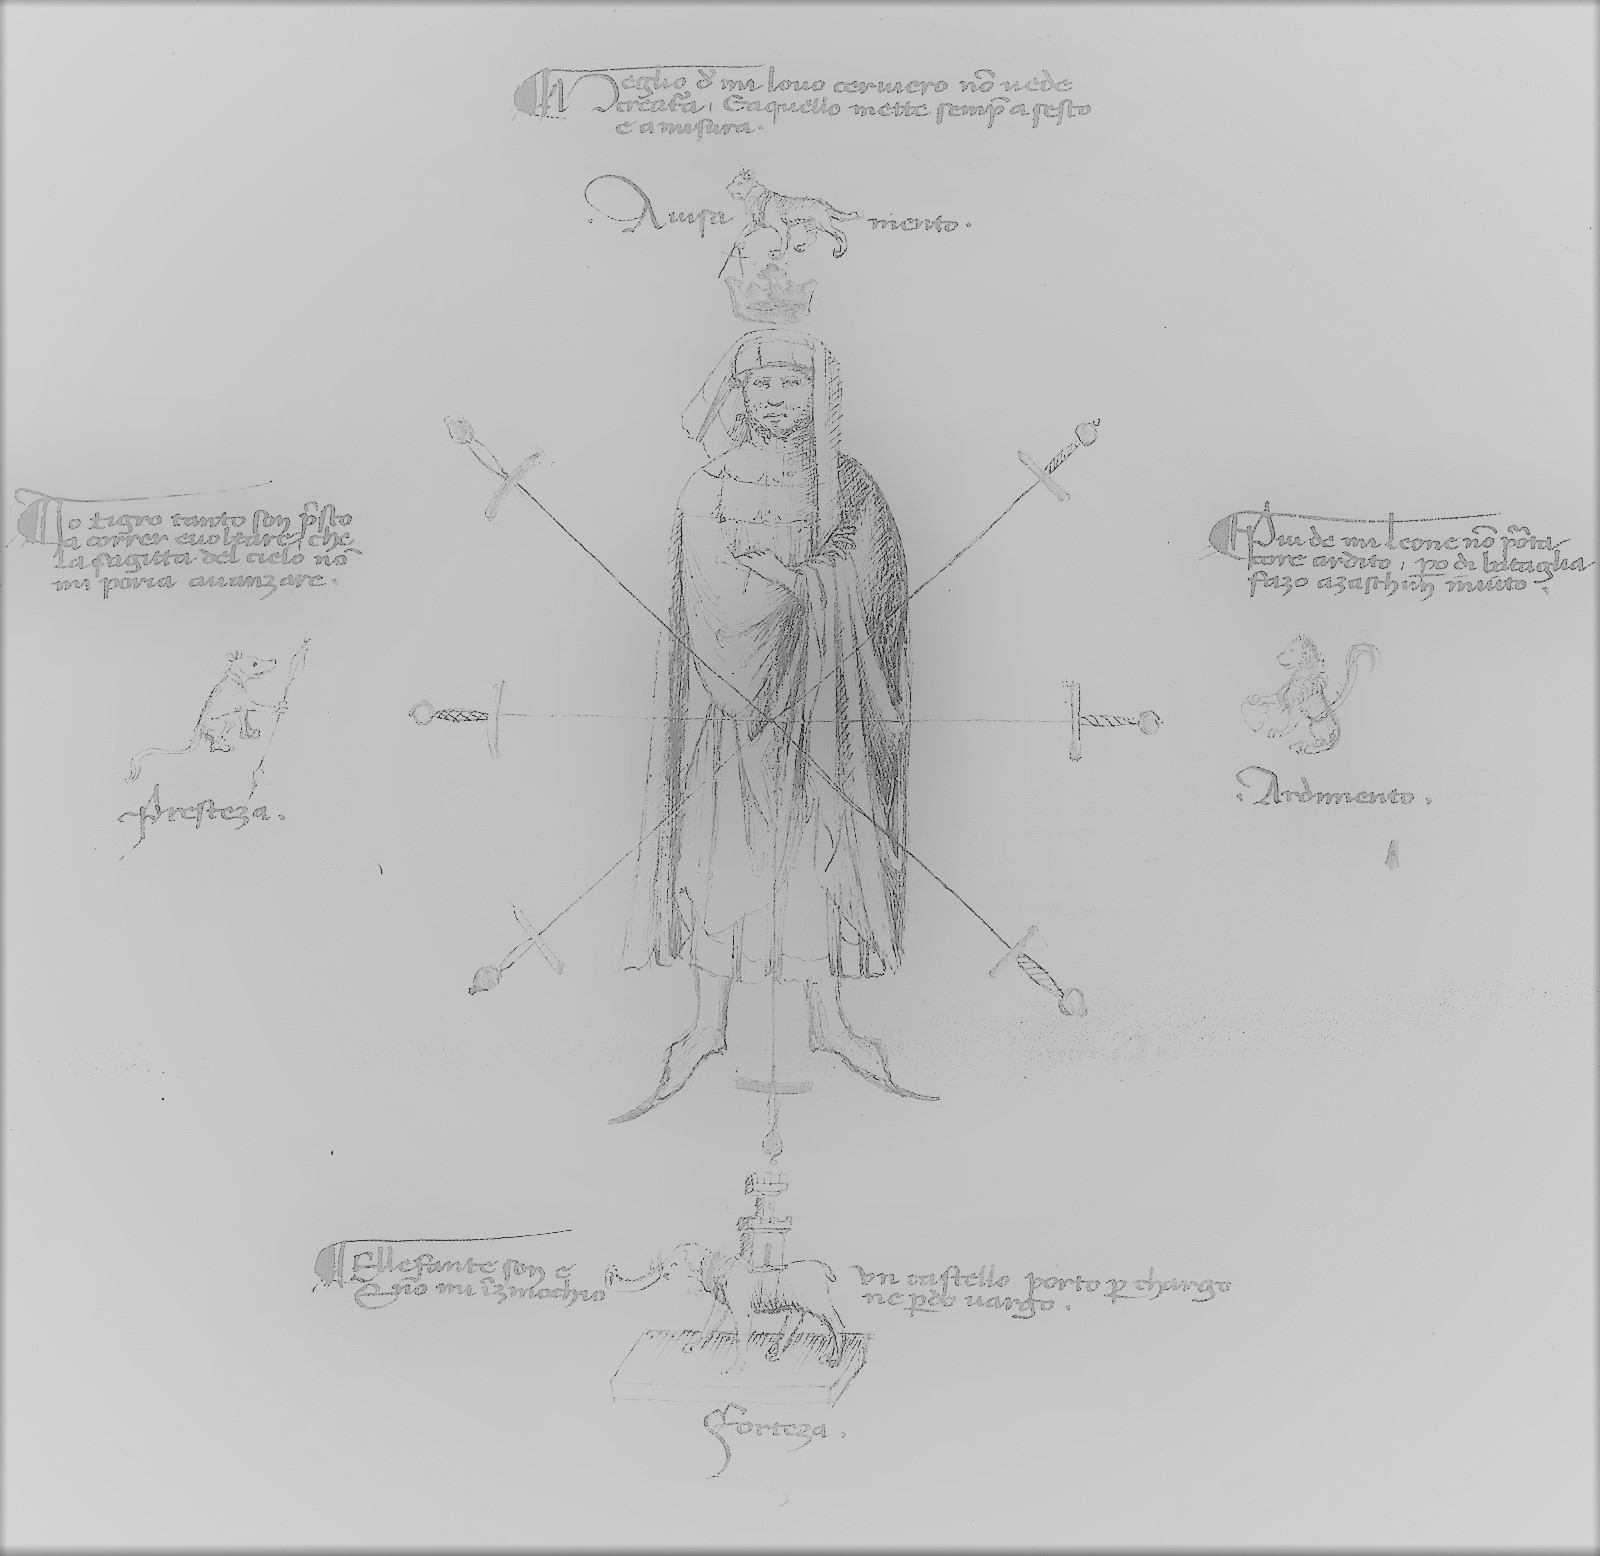 Meglio d' mi lovo cerviero nō vede
creat'a, E aquello mette semp̄ a sesto
e a misura.
. Avisa mento .
Io tigro tanto son p̄sto
a correr e uoltare, che
la sagitta del cielo nō
mi poria auanzare .
Piu de mi leone nō porta
core ardito, po di bataglia
fazo azaschun inuito .
Presteza .
. Ardimento .
Ellefante son e un castello porto p chargo
E nō mi īzinochio ne p̄do vargo .
Forteza .